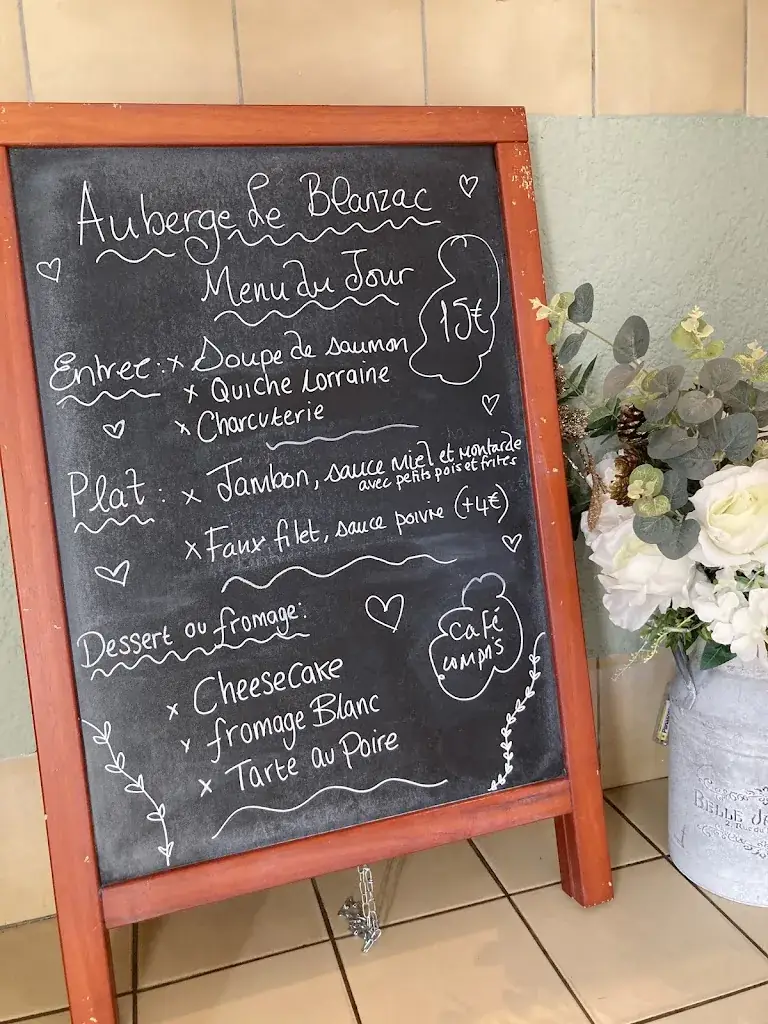 Auberge Le Blanzac
Menu du Jour
15€
Entree: x Soupe de saumon
x Quiche Lorraine
x Charcuterie
Plat: x Jambon, sauce Miel et Montarde
avec petits pois et frites
x Faux filet, sauce poivre (+4€)
Dessert ou fromage:
Café
compris
x Cheesecake
x fromage Blanc
x Tarte au Poire
BELLE